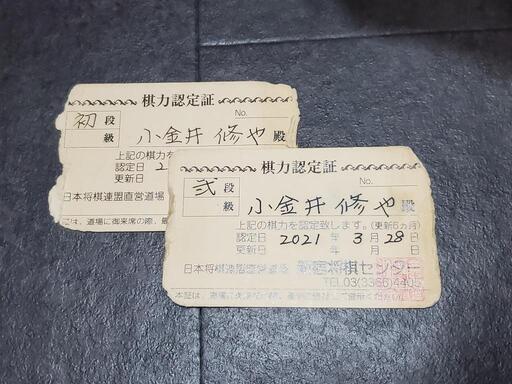 棋力認定証
No.
初 段
級
小金井 修也 殿
上記の棋力を
認定日 2
更新日
日本将棋連盟直営道場
には、道場に御来席の際、
棋力認定証
No.
弐 段
級
小金井 修也 殿
上記の棋力を認定致します。(更新6ヵ月)
認定日 2021 年 3 月 28 日
更新日 年 月 日
日本将棋連盟直営道場 新宿将棋センター
TEL03(3366)4405
本証は、道場に御来席の際、